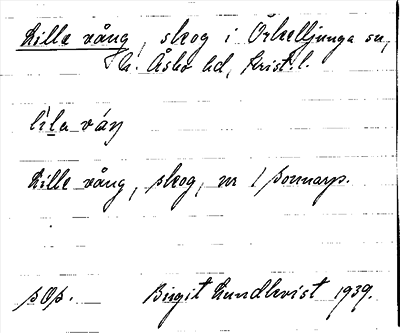 Lille vång, skog i Örkelljunga sn,
N. Åsbo hd, Krist. l.
lìla váŋ
Lille vång, skog, nr 1 Sonnarp.
pOp. Birgit Lundkvist 1939.